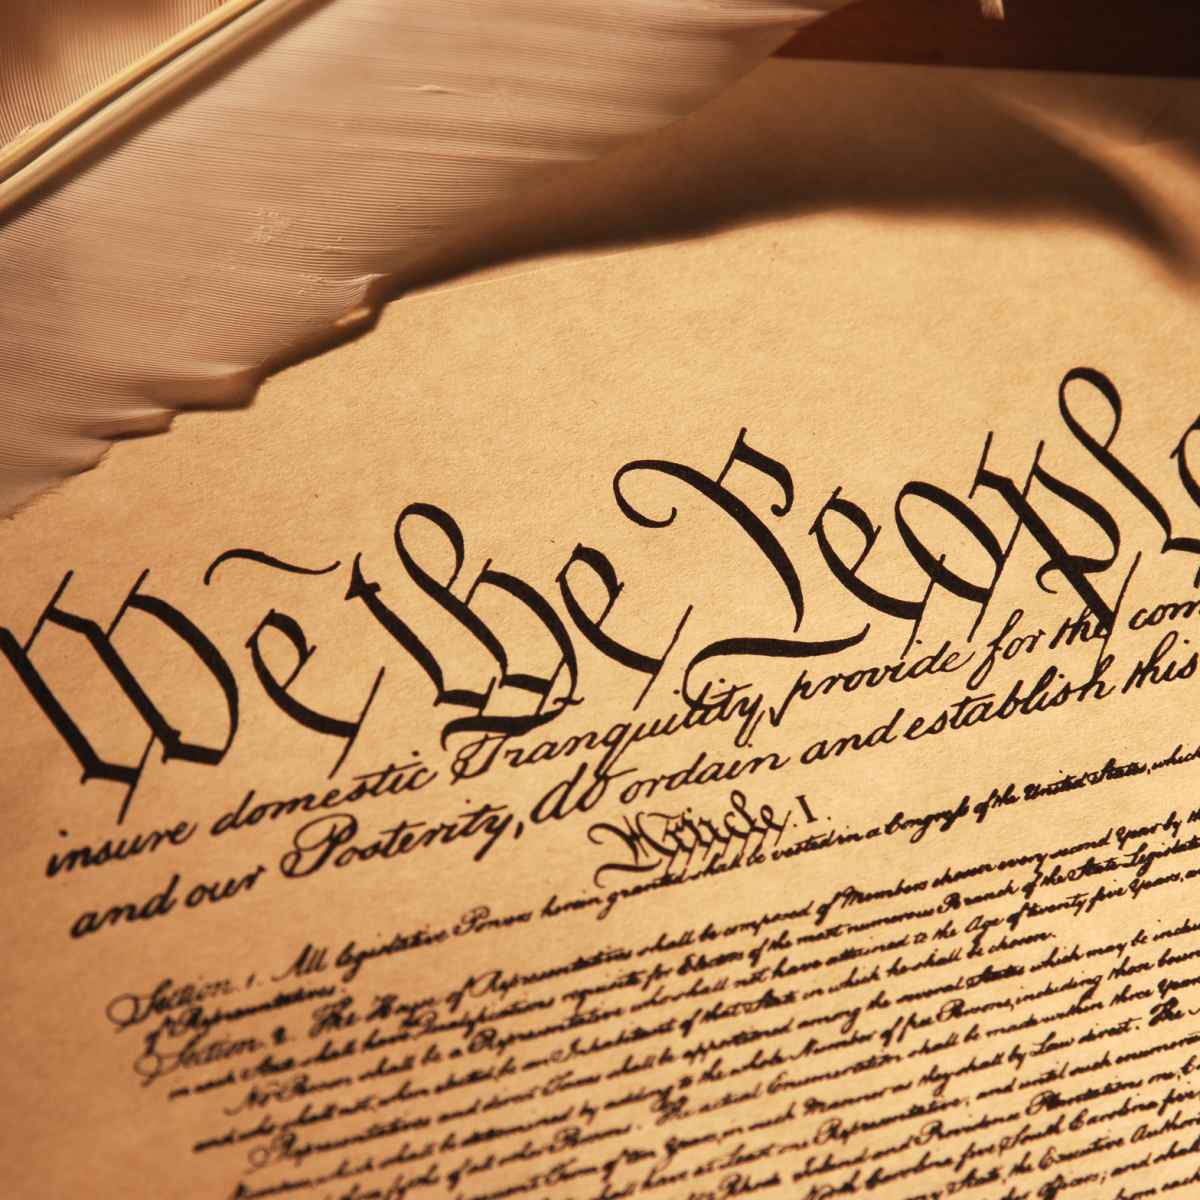 We the People
insure domestic Tranquility, provide for the com
and our Posterity, do ordain and establish this
Article. I.
Section. 1. All legislative Powers herein granted shall be vested in a Congress of the United States, which
of Representatives.
Section. 2. The House of Representatives shall be composed of Members chosen every second Year by the
in each State shall have Qualifications requisite for Electors of the most numerous Branch of the State Legislature
No Person shall be a Representative who shall not have attained to the Age of twenty five Years, and
and who shall not, when elected, be an Inhabitant of that State in which he shall be chosen.
Representatives and direct Taxes shall be apportioned among the several States which may be included
Number, which shall be determined by adding to the whole Number of free Persons, including those bound
of all other Persons. The actual Enumeration shall be made within three Years
Term of ten Years, in such Manner as they shall by Law direct. The
shall have at Least one Representative; and until such enumeration
Rhode Island and Providence Plantations one,
North Carolina five, South Carolina five
State, the Executive Authority